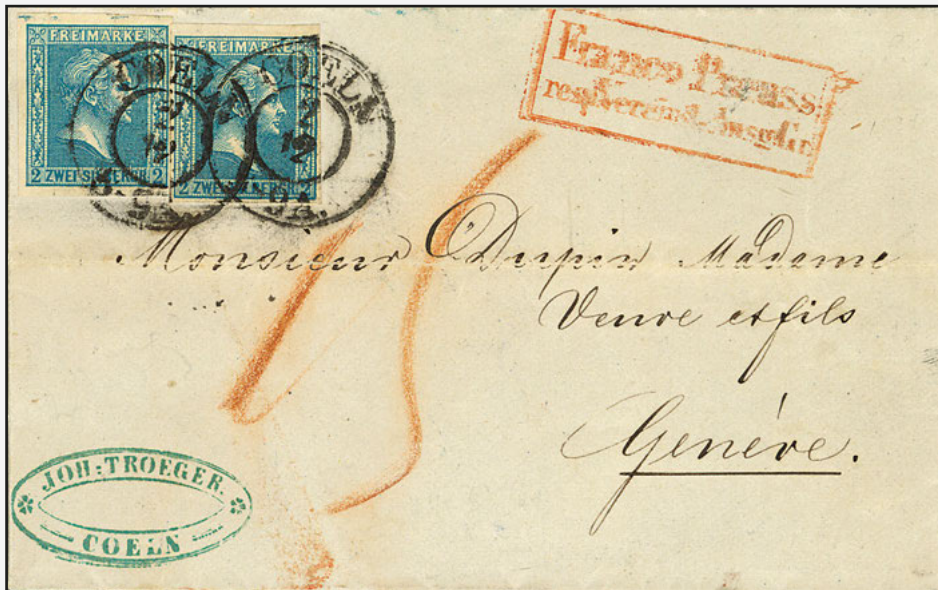 FREIMARKE
2 ZWEI SILBERGR. 2
FREIMARKE
2 ZWEI SILBERGR. 2
COELN
2
12
COELN
2
12
Franco Preuss.
resp. Vereins-Ausg. Gr.
15
Monsieur Dupin Madame
Veuve et fils
Genève.
JOH: TROEGER.
COELN